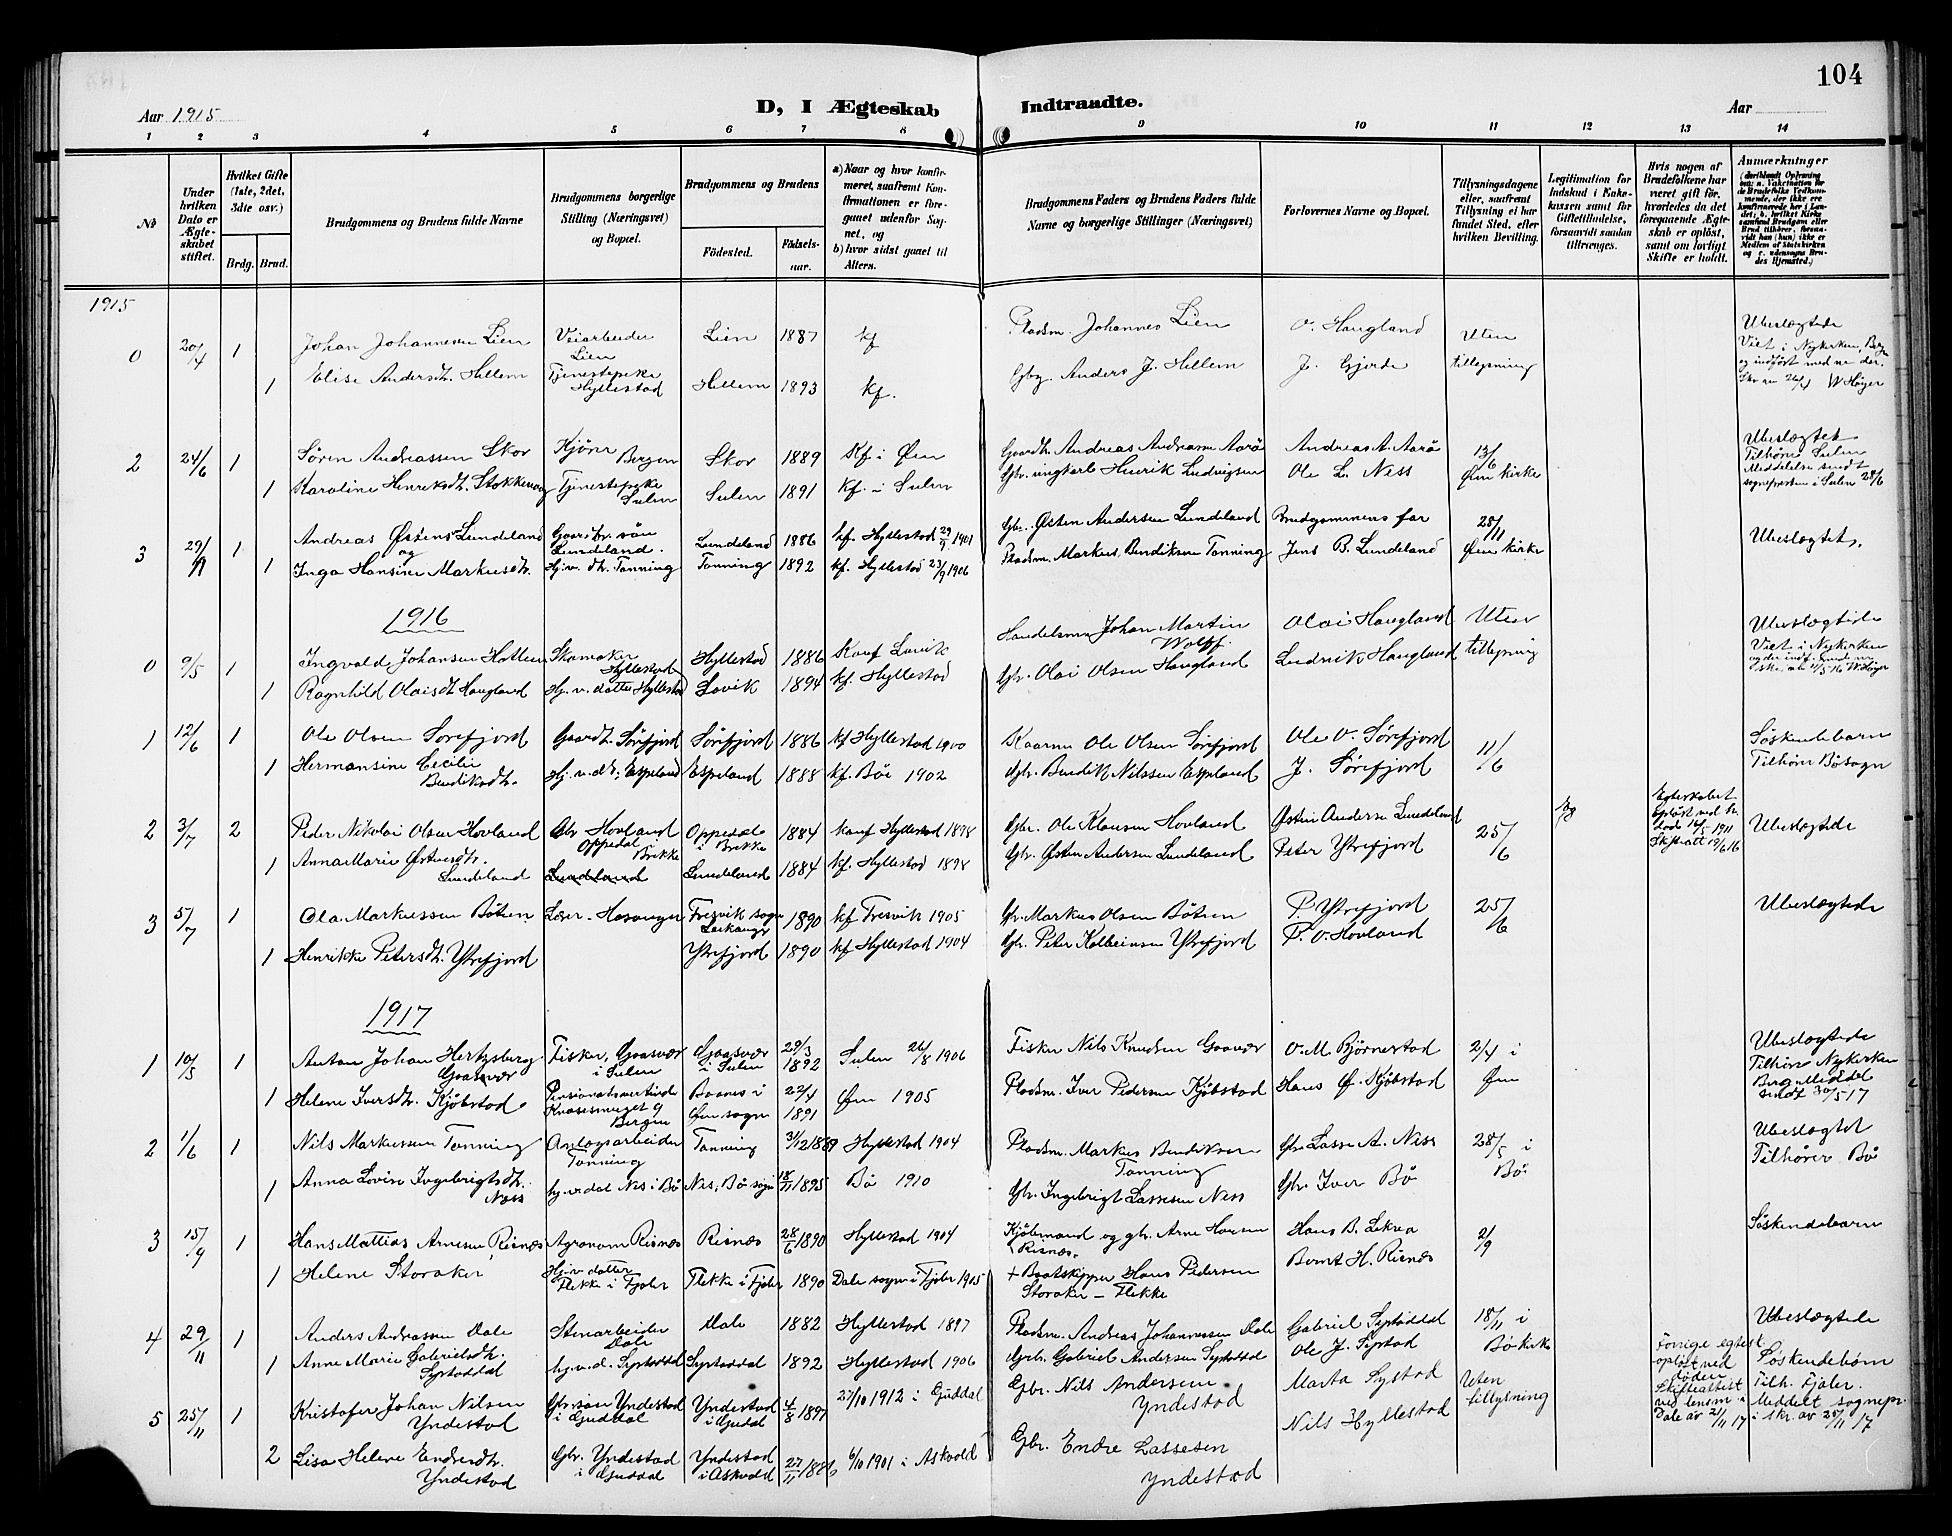 104
Aar 1915
D, I Ægteskab Indtraadte.
Aar
1 2 3 4 5 6 7 8 9 10 11 12 13 14
№
Under hvilken Dato er Ægteskabet stiftet.
Hvilket Gifte (1ste, 2det, 3dte osv.)
Brdg. Brud.
Brudgommens og Brudens fulde Navne
Brudgommens borgerlige Stilling (Næringsvei) og Bopæl.
Brudgommens og Brudens
Födested.
Födselsaar.
a) Naar og hvor konfirmeret, saafremt Konfirmationen er foregaaet udenfor Sognet, og
b) hvor sidst gaaet til Alters.
Brudgommens Faders og Brudens Faders fulde Navne og borgerlige Stillinger (Næringsvei)
Forlovernes Navne og Bopæl.
Tillysningsdagene eller, saafremt Tillysning ei har fundet Sted, efter hvilken Bevilling.
Legitimation for Indskud i Enkekassen samt for Giftetilladelse, forsaavidt saadan tiltrænges.
Hvis nogen af Brudefolkene har været gift för, hvorledes da det foregaaende Ægteskab er oplöst, samt om lovligt Skifte er holdt.
Anmærkninger
1915
0 20/4 1 Johan Johannesen Lien Veiarbeider Lien Lien 1887 kf Pladsm. Johannes Lien O. Haugland Uten Ubeslegtede
1 Elise Andersdt. Hellem Tjenestepike Hyllestad Hellem 1893 kf. Gbr. Anders J. Hellem J. Gjerde tillysning Viet i Nykirken, Bergen
2 24/6 1 Søren Andreassen Skor Bergen Skor 1889 Kf. i Øen Gaardb. Andreas Andreasen Aarø Andreas A. Aarø 13/6 Ubeslegtet Tilhører Sulen
1 Karoline Henriksdt. Tjenestepike Sulen Sulen 1891 kf. i Sulen Gbr. ungkarl Henrik Ludvigsen Ole L. Ness Øen kirke Meddelelse sendt sognepresten i Sulen 28/6
3 29/11 1 Andreas Østens. Lundeland og Gaardbr. søn Lundeland. Lundeland 1886 kf. Hyllestad 29/9 1901 Gbr. Østen Andersen Lundeland Brudgommens far 28/11 Ubeslegtet.
1 Inga Hansine Markusdt. Hj.v. dt. Tonning Tonning 1892 kf. Hyllestad 23/9 1906 Pladsm. Markus Bendiksen Tonning Jens B. Lundeland Øen kirke
1916
0 9/5 1 Ingvald Johansen Skomaker Hyllestad Hyllestad 1886 Konf Lavik Handelsm. Johan Martin Wolff. Olai Haugland Uten Ubeslegtede
1 Ragnhild Olaisdt. Haugland Hj.v. datter Hyllestad Lavik 1894 kf. Hyllestad Gbr. Olai Olsen Haugland Ludvik Haugland tillysning Viet i Nykirken
1 12/6 1 Ole Olsen Sørefjord Gaardb. Sørefjord Sørefjord 1886 kf Hyllestad 1900 Kaarm. Ole Olsen Sørefjord Ole O. Sørefjord 11/6 Søskendebarn
1 Hermansine Cecilie Bendiksdt. Hj.v. dt. Espeland Espeland 1888 kf. Bøe 1902 Gbr. Bendik Nilssen Espeland J. Sørefjord Tilhører Bø sogn
2 3/7 2 Peder Nikolai Olsen Hovland Gbr Hovland Oppedal Brekke Oppedal i Brekke 1884 konf Hyllestad 1898 Gbr. Ole Klausen Hovland Østen Andersen Lundeland 25/6 Egteskabet opløst ved død 14/5 1911 Skifteatt 19/6 16 Ubeslegtede
1 Anna Marie Østensdt. Lundeland Lundeland Lundeland 1884 kf. Hyllestad 1898 Gbr. Østen Andersen Lundeland Peter Ytrefjord
3 5/7 1 Ola Markussen Bøtun Lærer - Hosanger Fresvik sogn Leikanger 1890 kf Fresvik 1905 Gbr. Markus Olsen Bøtun P. Ytrefjord 25/6 Ubeslegtede
1 Henrikke Petersdt. Ytrefjord Ytrefjord 1890 kf Hyllestad 1904 Gbr. Peter Kolbeinsen Ytrefjord P. O. Hovland
1917
1 10/5 1 Anton Johan Hertzberg Gaasvær Fisker, Gaasvær i Sulen Gaasvær i Sulen 29/3 1892 Sulen 26/8 1906 Fisker Nils Knudsen Gaasvær O. M. Bjørnestad 2/4 i Øen Ubeslegtede Tilhører Nykirken Bergen Meddel sendt 30/5 17
1 Helene Iversdt. Kjøbstad. Bergen Øen sogn 22/4 1891 Øen 1905 Pladsm. Iver Pedersen Kjøbstad Hans Ø. Kjøbstad
2 1/6 1 Nils Markussen Tonning Anlægsarbeider Tonning Tonning 3/12 1889 Hyllestad 1904 Pladsm. Markus Bendiksen Tonning Gbr. Lasse A. Ness 28/5 i Bø Ubeslegtet Tilhører Bø
1 Anna Lovise Ingebrigtsdt. Ness hj.v. dat Nes i Bø Nes, Bø sogn 18/11 1895 Bø 1910 Gbr. Ingebrigt Lassesen Ness Gbr. Iver Bø
3 15/9 1 Hans Mattias Arnesen Risnes Agronom Risnes Risnes 28/6 1890 Hyllestad 1904 Kjøbmand og gbr. Arne Hansen Risnes. Hans B. Leknes 2/9 Søskendebarn
1 Helene Storaker Hj.v. datter Flekke i Fjaler Flekke i Fjaler 1890 Dale sogn i Fjaler 1905 + Baatskipper Hans Pedersen Storaker - Flekke Bernt H. Risnes
4 29/11 1 Anders Andreassen Dale Stenarbeider Dale Dale 1882 Hyllestad 1897 Pladsm. Andreas Johannessen Dale Gabriel Systaddal 18/11 i Bø kirke Ubeslegtede
1 Anne Marie Gabrielsdt. Systaddal hj.v.d. Systaddal Systaddal 1892 Hyllestad 1906 Gbr. Gabriel Andersen Systaddal Ole J. Systad
5 25/11 1 Kristofer Johan Nilsen Yndestad Gbr.søn Yndestad i Guddal Yndestad i Guddal 4/8 1897 27/10 1912 i Guddal Gbr. Nils Andersen Yndestad Marta Systad Uten tillysning Forrige egtesk opløst ved døden Skifteattest ved lensm. i Dale av 21/11 17 Søskendebørn Tilh. Fjaler. Meddelt sognepr. i skr. av 25/11 17
2 Lisa Helene Endresdt. Yndestad Gbr. Yndestad i Guddal Yndestad i Askvold 27/11 1886 6/10 1901 i Askvold Gbr. Endre Lassesen Yndestad Nils Hyllestad